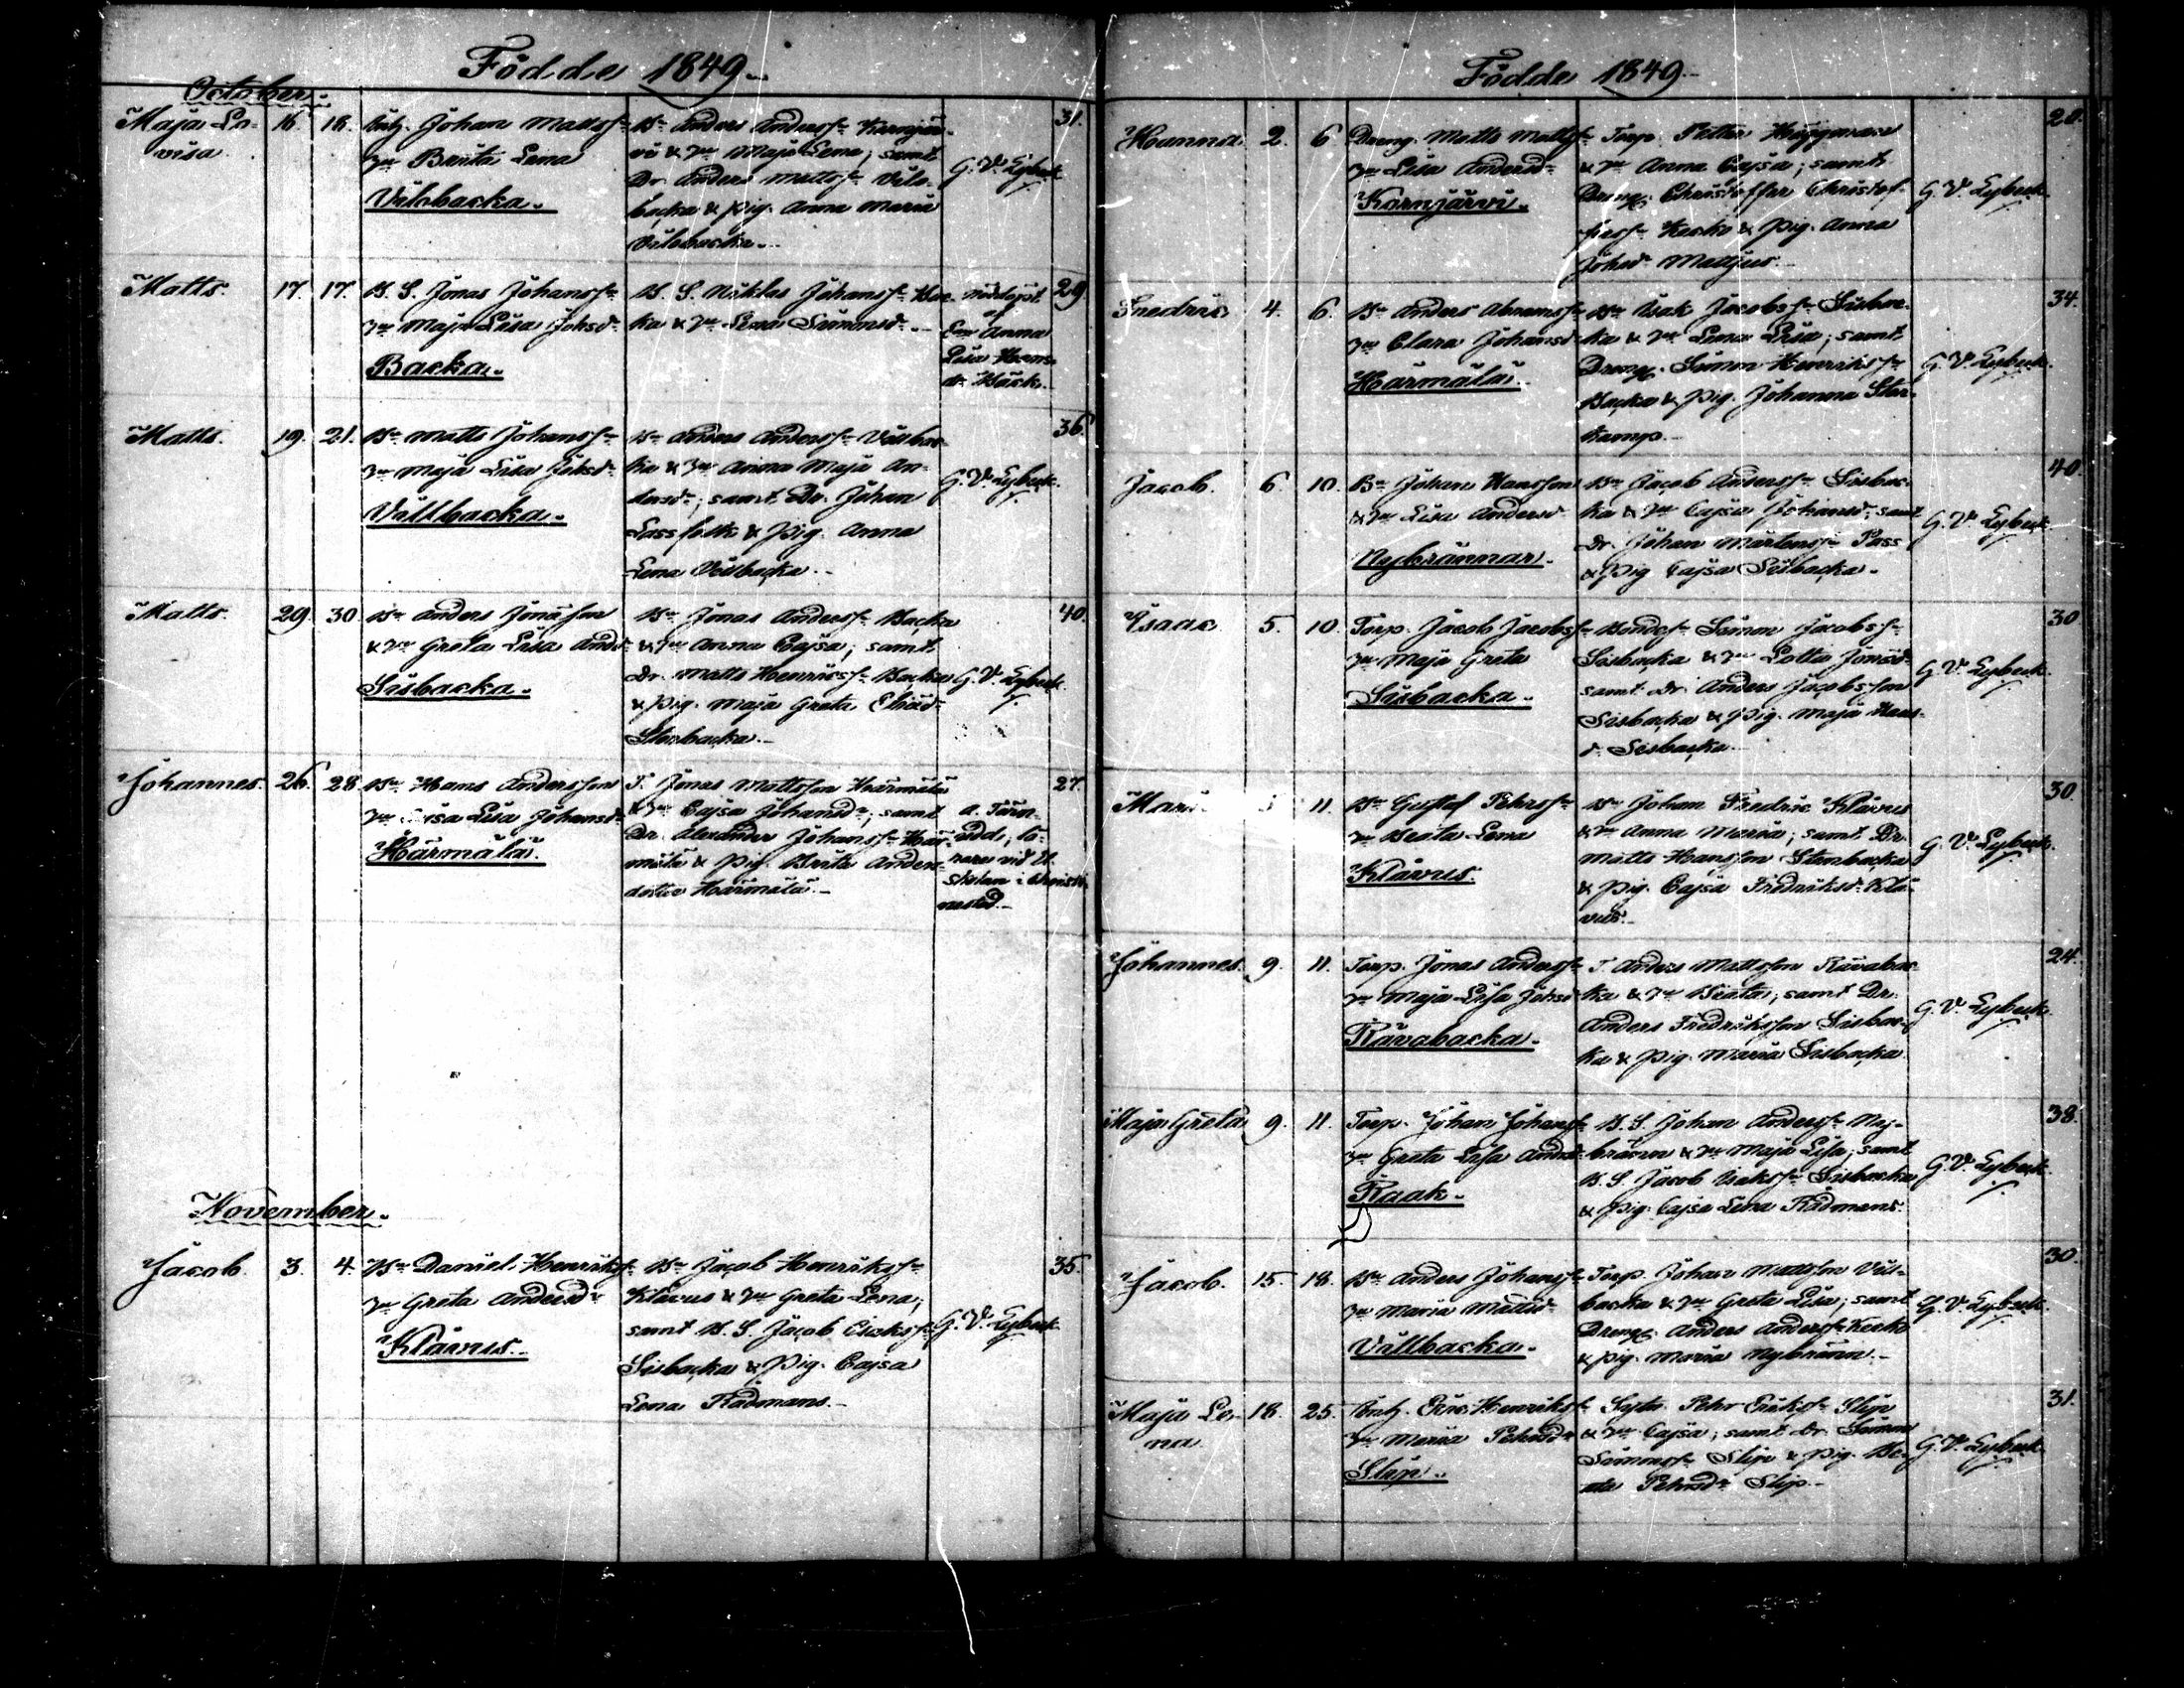 Födde 1849.
October.
Maja Lo-
visa
16. 18.
Inh. Johan Mattss.
hu Brita Lena
Vilobacka.
Bn Anders Anderss. Karnjär-
vi & hu Maja Lena; samt
Dr. Anders Mattss. Vilo-
backa & pig. Anna Maria
Vilobacka.
G. V. Lybeck
31.
Matts.
17. 17.
B. S. Jonas Johanss.
hu Maja Lisa Johsd.
Backa.
B. S. Niklas Johanss. Bac-
ka & hu Lena Simonsd.
nöddöpt
af
Enk. Anna
Lisa Hans-
dr Bäck.
29
Matts.
19. 21.
Bn Matts Johanss.
hu Maja Lisa Johsd.
Villbacka.
Bn Anders Anderss. Villbac-
ka & hu Anna Maja An-
dersd.; samt Dr. Johan
Lassfolk & pig. Anna
Lena Villbacka.
G. V. Lybeck.
36.
Matts.
29. 30
Bn Anders Jonasson
& hu Greta Lisa Andd.
Sisbacka.
Bn Jonas Anderss. Backa
& hu Anna Cajsa; samt
Dr. Matts Henrikss. Backa
& pig. Maja Greta Eliasd.
Stenbacka.
G. V. Lybeck
40.
Johannes.
26. 28.
Bn Hans Andersson
hu Lisa Johansd.
Härmälä.
T. Jonas Mattsson Härmälä
& hu Cajsa Johansd.; samt
Dr. Alexander Johanss. Här-
mälä & pig. Brita Anders-
dotter Härmälä.
a. Törn-
udd, lä-
rare vid El.
skolan i Christi-
nestad.
27.
November.
Jacob.
3. 4.
Bn Daniel Henrikss.
hu Greta Andersd.
Klavus.
Bn Jacob Henrikss.
Klavus & hu Greta Lena;
samt B. S. Jacob Isakss.
Sisbacka & pig. Cajsa
Lena Rådmans.
G. V. Lybeck
35.
Födde 1849.
Hanna.
2. 6
Dreng. Matts Mattss.
hu Lisa Andersd.
Karnjärvi.
Torp. Petter Häggman
& hu Anna Cajsa; samt
Dreng. Christoffer Christof-
ferss. Kecko & pig. Anna
Johsd. Mattjus.
G. V. Lybeck
20.
Fredric
4. 6.
Bn Anders Abramss.
hu Clara Johansd.
Härmälä.
Bn Isak Jacobss. Sisbac-
ka & hu Lena Lisa; samt
Dreng. Simon Henrikss.
Backa & pig. Johanna Star-
kamp.
G. V. Lybeck.
34.
Jacob.
6. 10.
Bn Johan Hansson
& hu Lisa Andersd.
Nybrännar.
Bn Jacob Anderss. Sisbac-
ka & hu Cajsa Johansd.; samt
Dr. Johan Mårtenss. Pass
& pig Cajsa Sisbacka.
G. V. Lybeck.
40
Isaac
5. 10.
Torp. Jacob Jacobss.
hu Maja Greta
Sisbacka.
Bondes. Simon Jacobss.
Sisbacka & hu Lotta Jonsd.
samt Dr. Anders Jacobsson
Sisbacka & pig. Maja Hans-
d. Sisbacka.
G. V. Lybeck.
30
Mari
11.
Bn Gustaf Pehrss.
hu Beata Lena
Klavus.
Bn Johan Fredric Klavus
& hu Anna Maria; samt Dr.
Matts Hansson Stenbacka
& pig. Cajsa Fredriksd. Kla-
vus.
G. V. Lybeck.
30.
Johannes.
9. 11.
Torp. Jonas Anderss.
hu Maja Lisa Johsd.
Rävabacka.
T. Anders Mattsson Rävabac-
ka & hu Beata; samt Dr.
Anders Fredriksson Sisbac-
ka & pig. Maria Sisbacka
G. V. Lybeck.
24.
Maja Greta
9. 11.
Torp. Johan Johanss.
hu Greta Lisa Andsd.
Kaak.
B. S. Johan Anderss. Ny-
bränn & hu Maja Lisa; samt
B. S. Jacob Isakss. Sisbacka
& pig. Cajsa Lena Rådmans.
G. V. Lybeck.
38.
Jacob.
15. 18.
Bn Anders Johanss.
hu Maria Mattsd.
Villbacka.
Torp. Johan Mattsson Vill-
backa & hu Greta Lisa; samt
Dreng. Anders Anderss. Kecko
& pig. Maria Nybränn.
G. V. Lybeck.
30.
Maja Le-
na
18. 25.
Inh. Eric Henrikss.
hu Maria Pehrsd.
Slip.
Sytn. Pehr Erikss. Slip
& hu Cajsa; samt Dr. Simon
Simonss. Slip & pig. Be-
ata Pehrsd. Slip.
G. V. Lybeck.
31.